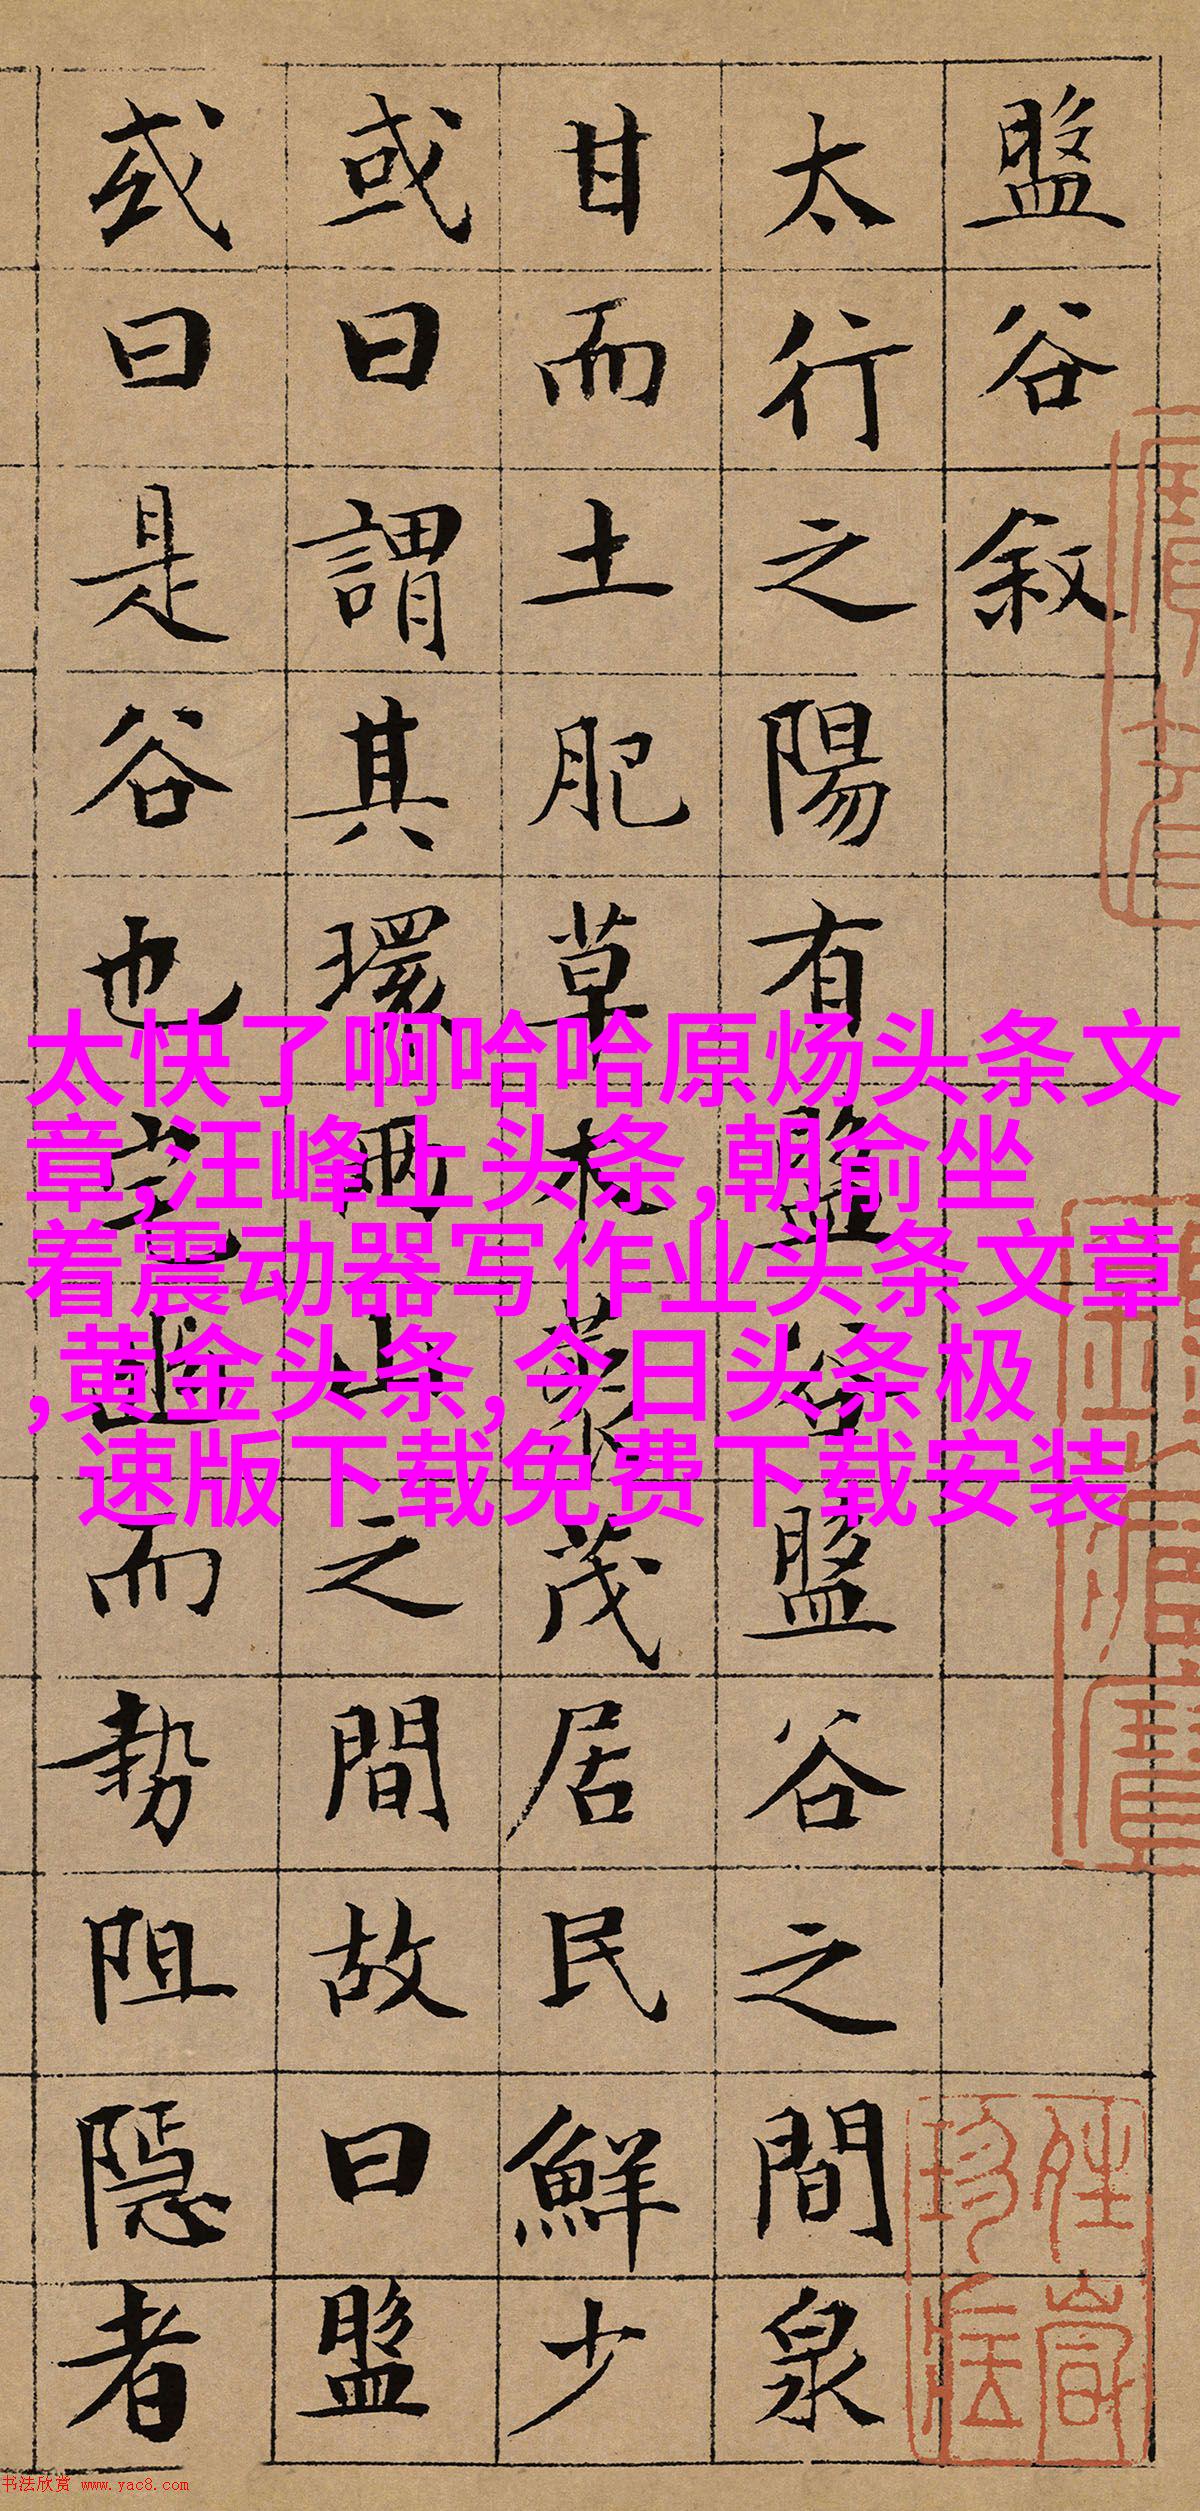 盤谷敘
太行之陽有盤谷盤谷之間泉
甘而土肥草木叢茂居民鮮少
或曰謂其環兩山之間故曰盤
或曰是谷也宅幽而勢阻隱者
太快了啊哈哈原炀头条文
章,汪峰上头条,朝俞坐
着震动器写作业头条文章
,黄金头条, 今日头条极
速版下载免费下载安装
书法欣赏 www.yac8.com